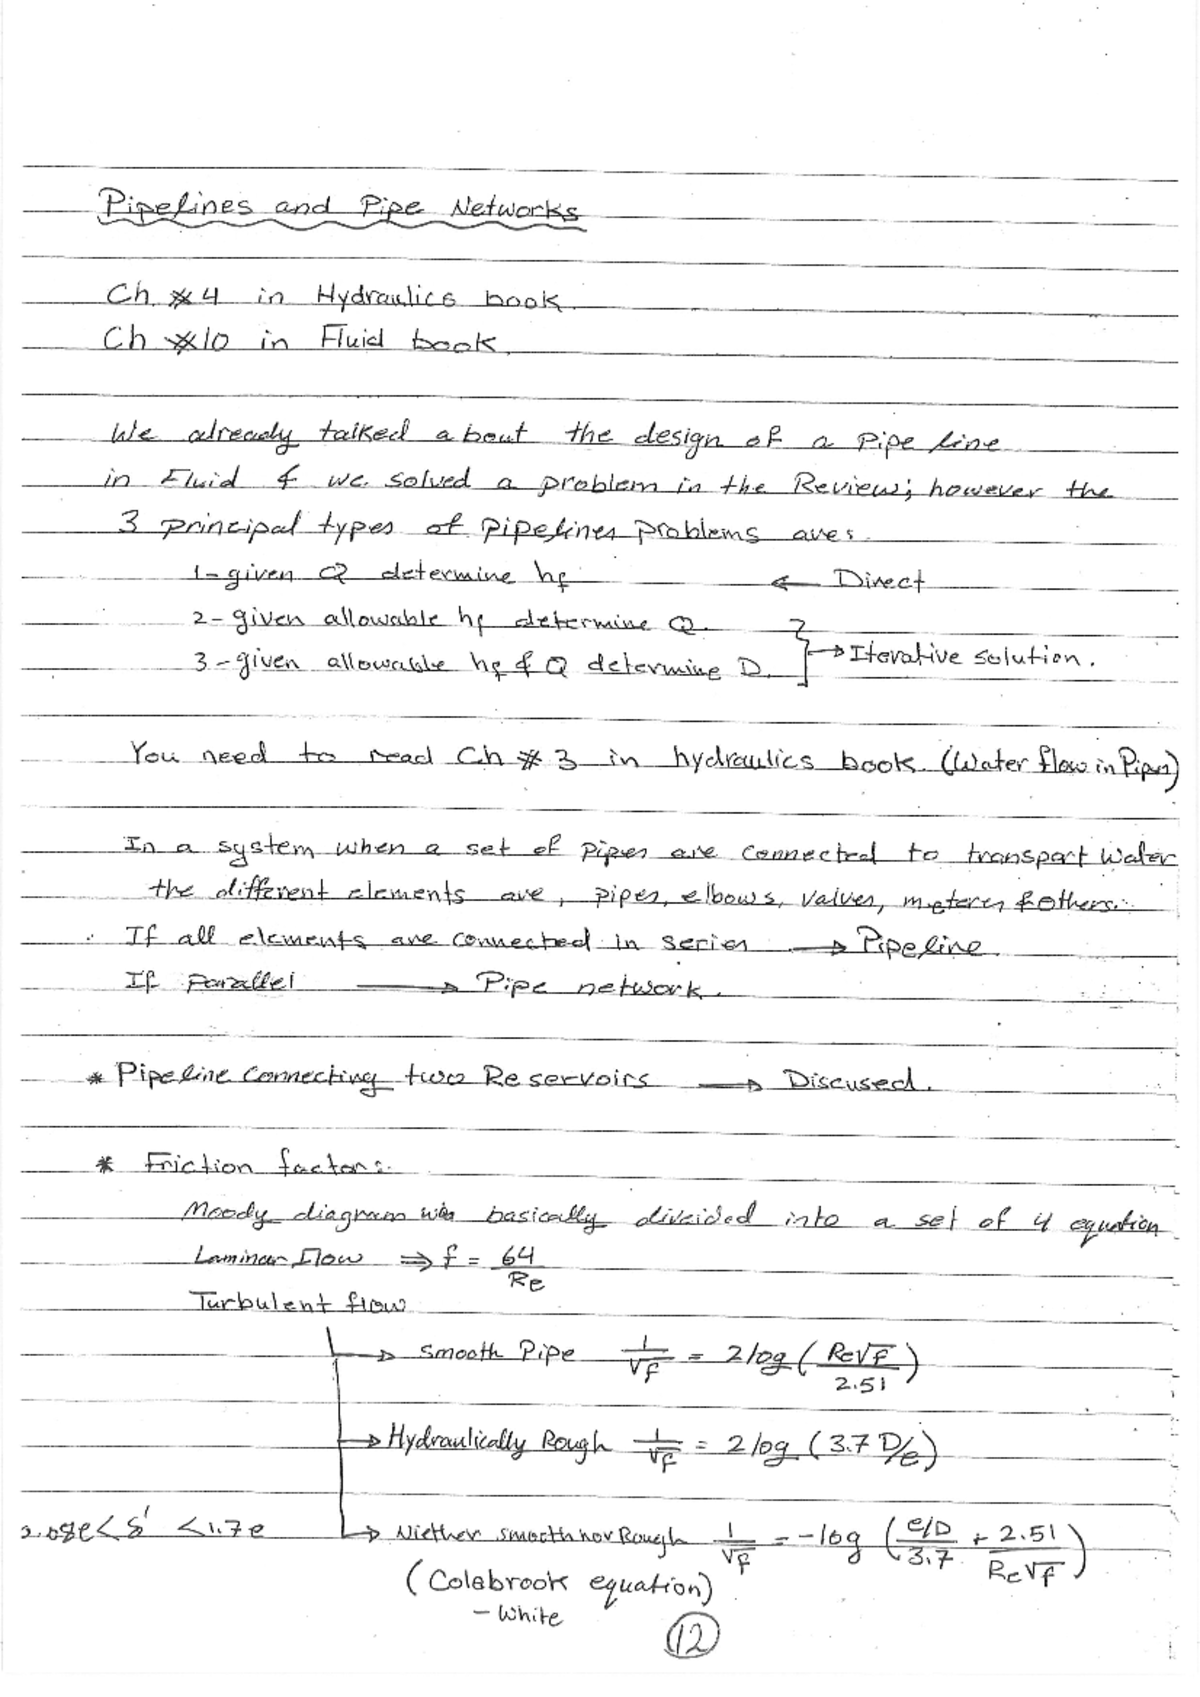 Pipelines and Pipe Networks
Ch. #4 in Hydraulics book.
Ch #10 in Fluid book.
We already talked about the design of a pipe line
in Fluid & we solved a problem in the Review; however the
3 principal types of pipelines problems are:
1- given Q determine hf ← Direct
2- given allowable hf determine Q.
3- given allowable hf & Q determine D. } → Iterative solution.
You need to read Ch # 3 in hydraulics book (Water flow in Pipes)
In a system when a set of pipes are connected to transport water
the different elements are, pipes, elbows, valves, meters & others.
If all elements are connected in series → Pipeline.
If Parallel → Pipe network.
* Pipeline connecting two Reservoirs → Discused.
* Friction factor:
Moody diagram was basically divided into a set of 4 equation
Laminar Flow ⇒ f = 64/Re
Turbulent flow
→ smooth Pipe 1/√f = 2log(Re√f/2.51)
→ Hydraulically Rough 1/√f = 2log(3.7 D/e)
.08e < δ' < 1.7e → Niether smooth nor Rough 1/√f = -log((e/D)/3.7 + 2.51/(Re√f))
(Colebrook equation)
- White
12